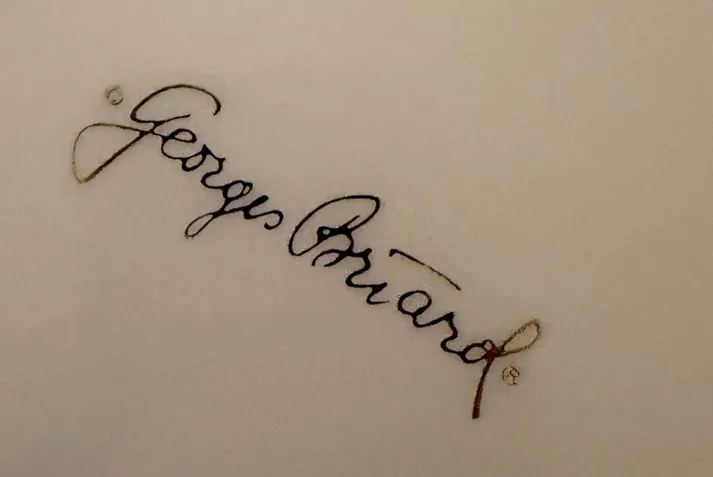 © Georges Briard ®